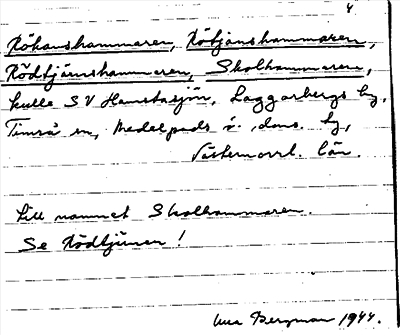 4
Kökanshammaren, Kötjänshammaren,
Rödtjärnshammaren, Skolhammaren,
kulle SV Hamstasjön, Laggarbergs by,
Timrå sn, Medelpads v. doms. by,
Västernorrl. län.
Till namnet Skolhammaren.
Se Rödtjärnen!
Bergman 1944.